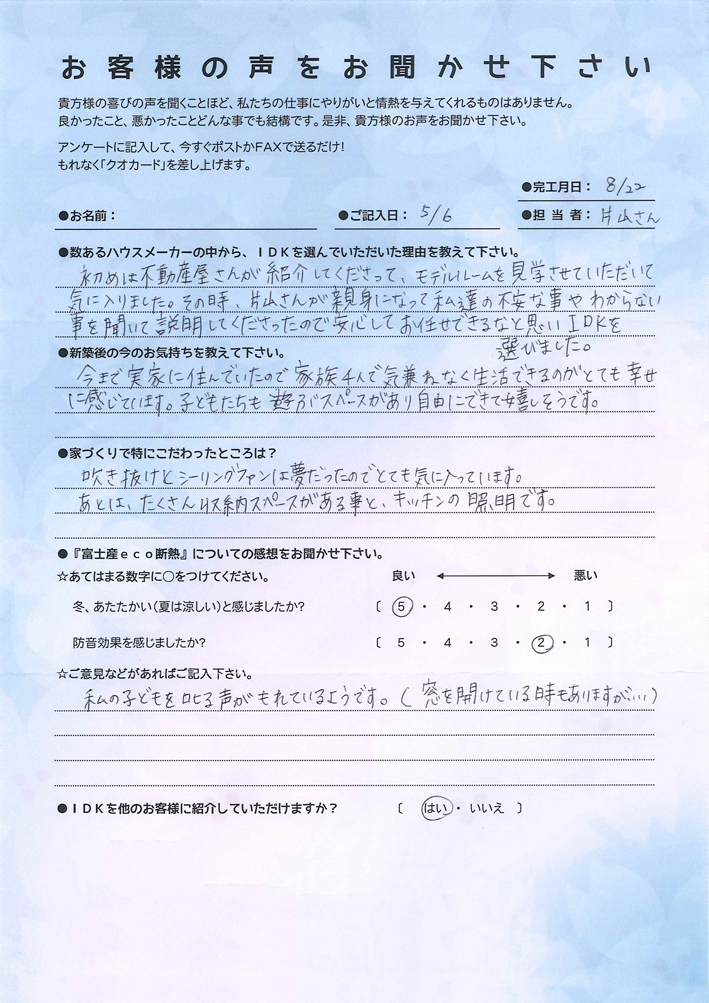 お客様の声をお聞かせ下さい
貴方様の喜びの声を聞くことほど、私たちの仕事にやりがいと情熱を与えてくれるものはありません。
良かったこと、悪かったことどんな事でも結構です。是非、貴方様のお声をお聞かせ下さい。
アンケートに記入して、今すぐポストかFAXで送るだけ!
もれなく「クオカード」を差し上げます。
●完工月日： 8/22
●お名前： ●ご記入日： 5/6 ●担 当 者： 片山さん
●数あるハウスメーカーの中から、ＩＤＫを選んでいただいた理由を教えて下さい。
初めは不動産屋さんが紹介してくださって、モデルルームを見学させていただいて
気に入りました。その時、片山さんが親身になって私達の不安な事やわからない
事を聞いて説明してくださったので安心してお任せできるなと思いＩＤＫを
選びました。
●新築後の今のお気持ちを教えて下さい。
今まで実家に住んでいたので家族4人で気兼ねなく生活できるのがとても幸せ
に感じています。子どもたちも遊ぶスペースがあり自由にできて嬉しそうです。
●家づくりで特にこだわったところは？
吹き抜けとシーリングファンは夢だったのでとても気に入っています。
あとは、たくさん収納スペースがある事と、キッチンの照明です。
●『富士産ｅｃｏ断熱』についての感想をお聞かせ下さい。
☆あてはまる数字に○をつけてください。 良い ⟷ 悪い
冬、あたたかい（夏は涼しい）と感じましたか？ 〔 5 ・ 4 ・ 3 ・ 2 ・ 1 〕
防音効果を感じましたか？ 〔 5 ・ 4 ・ 3 ・ 2 ・ 1 〕
☆ご意見などがあればご記入下さい。
私の子どもを叱る声がもれているようです。（窓を開けている時もありますが…）
●ＩＤＫを他のお客様に紹介していただけますか？ 〔 はい ・ いいえ 〕